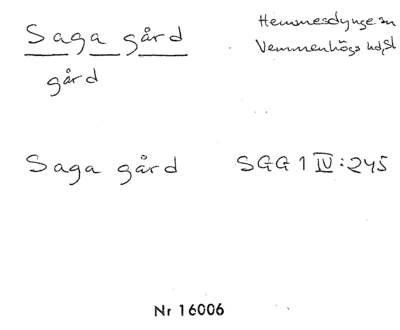 Saga gård
Hemmesdynge sn
Vemmenhögs hd, Sk
gård
Saga gård
SGG 1 IV:245
Nr 16006